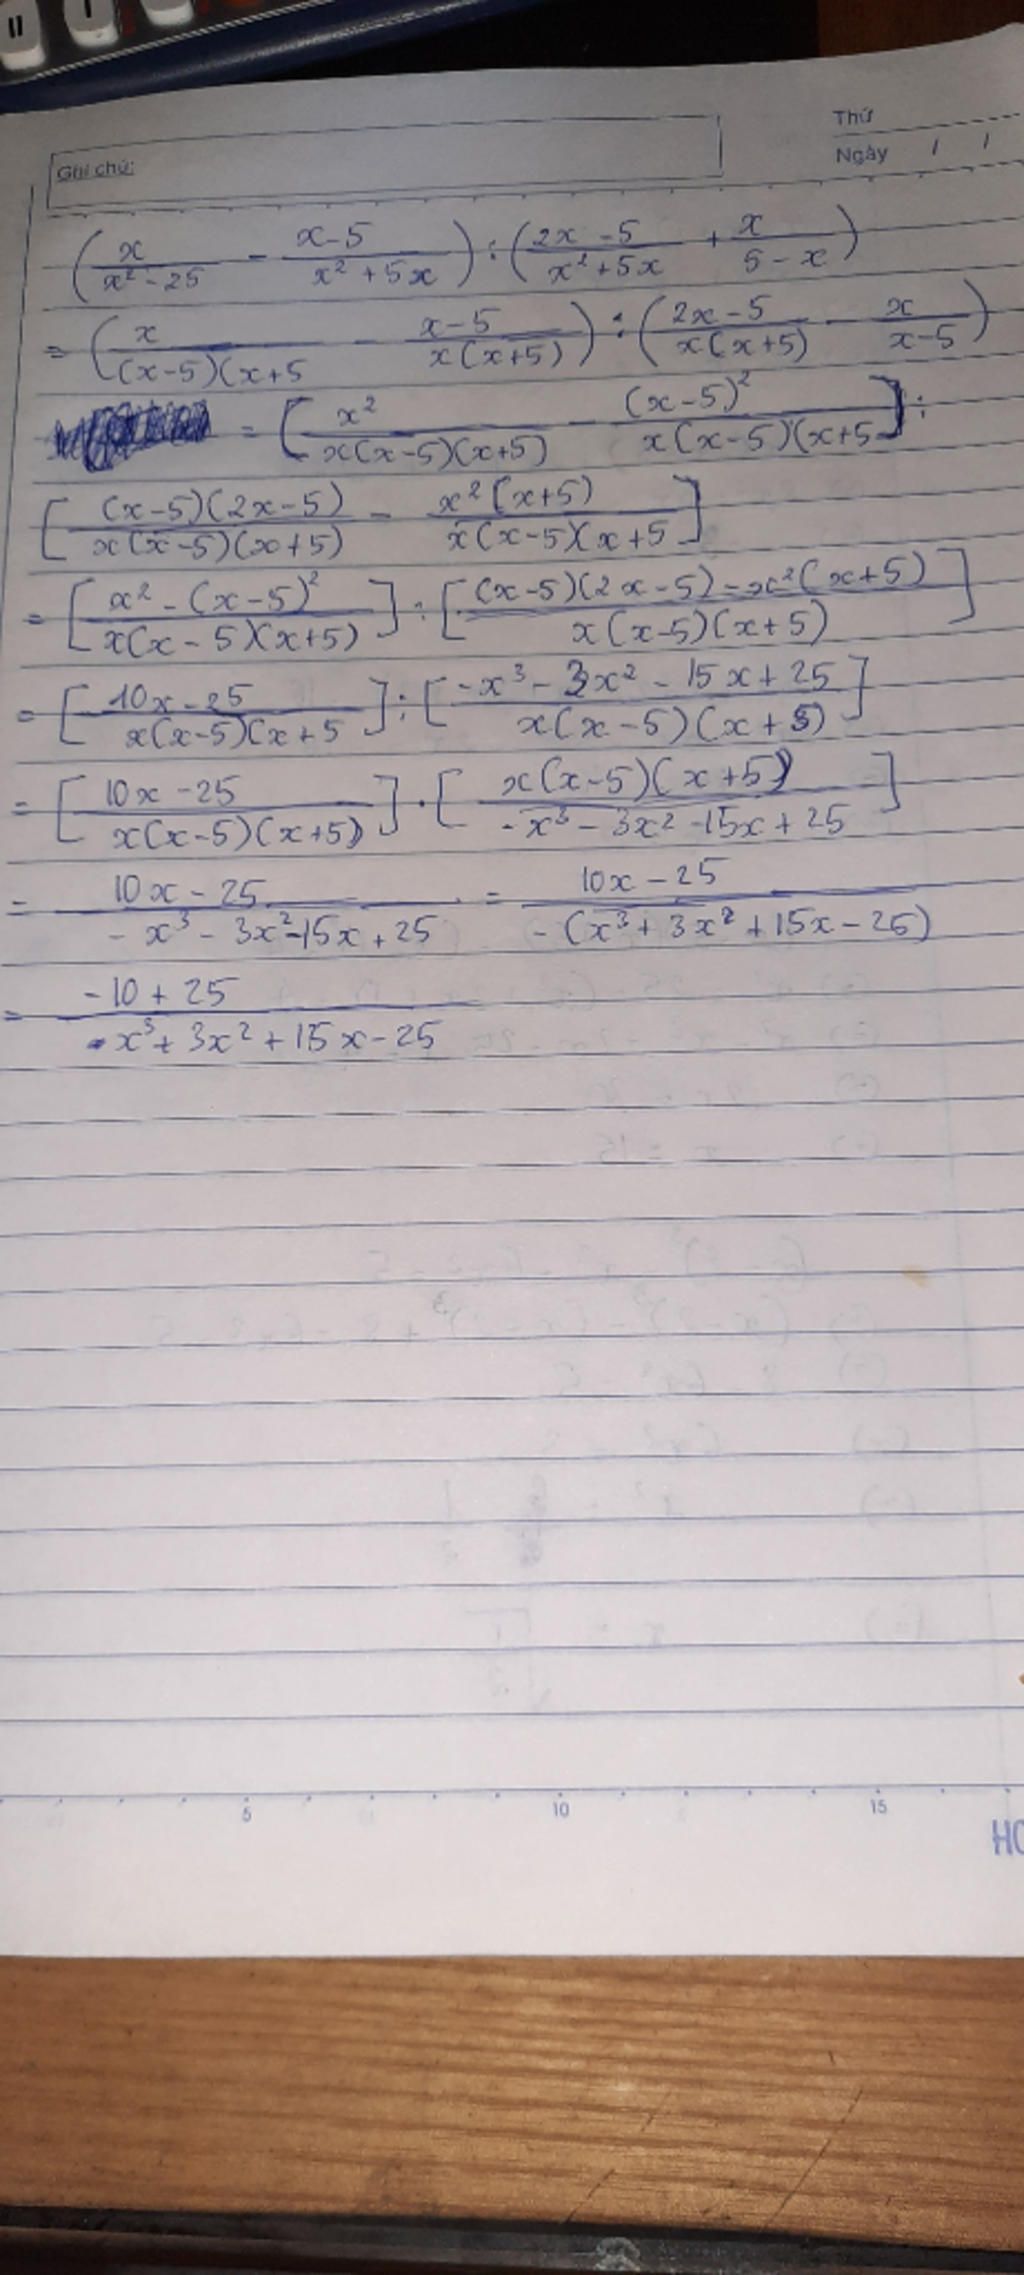 Ghi chú:
Thứ
Ngày / /
(x/(x² - 25) - (x-5)/(x² + 5x)) : ((2x - 5)/(x² + 5x) + x/(5 - x))
= (x/((x-5)(x+5) - (x-5)/(x(x+5))) : ((2x-5)/(x(x+5)) - x/(x-5))
= [x²/(x(x-5)(x+5)) - (x-5)²/(x(x-5)(x+5)] :
[(x-5)(2x-5)/(x(x-5)(x+5)) - x²(x+5)/(x(x-5)(x+5)]
= [(x² - (x-5)²)/(x(x-5)(x+5))] : [((x-5)(2x-5) - x²(x+5))/(x(x-5)(x+5))]
= [(10x-25)/(x(x-5)(x+5)] : [(-x³ - 3x² - 15x + 25)/(x(x-5)(x+5))]
= [(10x-25)/(x(x-5)(x+5))] . [x(x-5)(x+5)/(-x³ - 3x² - 15x + 25)]
= (10x - 25)/(-x³ - 3x² - 15x + 25) = (10x - 25)/(-(x³ + 3x² + 15x - 25))
= (-10 + 25)/(x³ + 3x² + 15x - 25)
5 10 15
HO